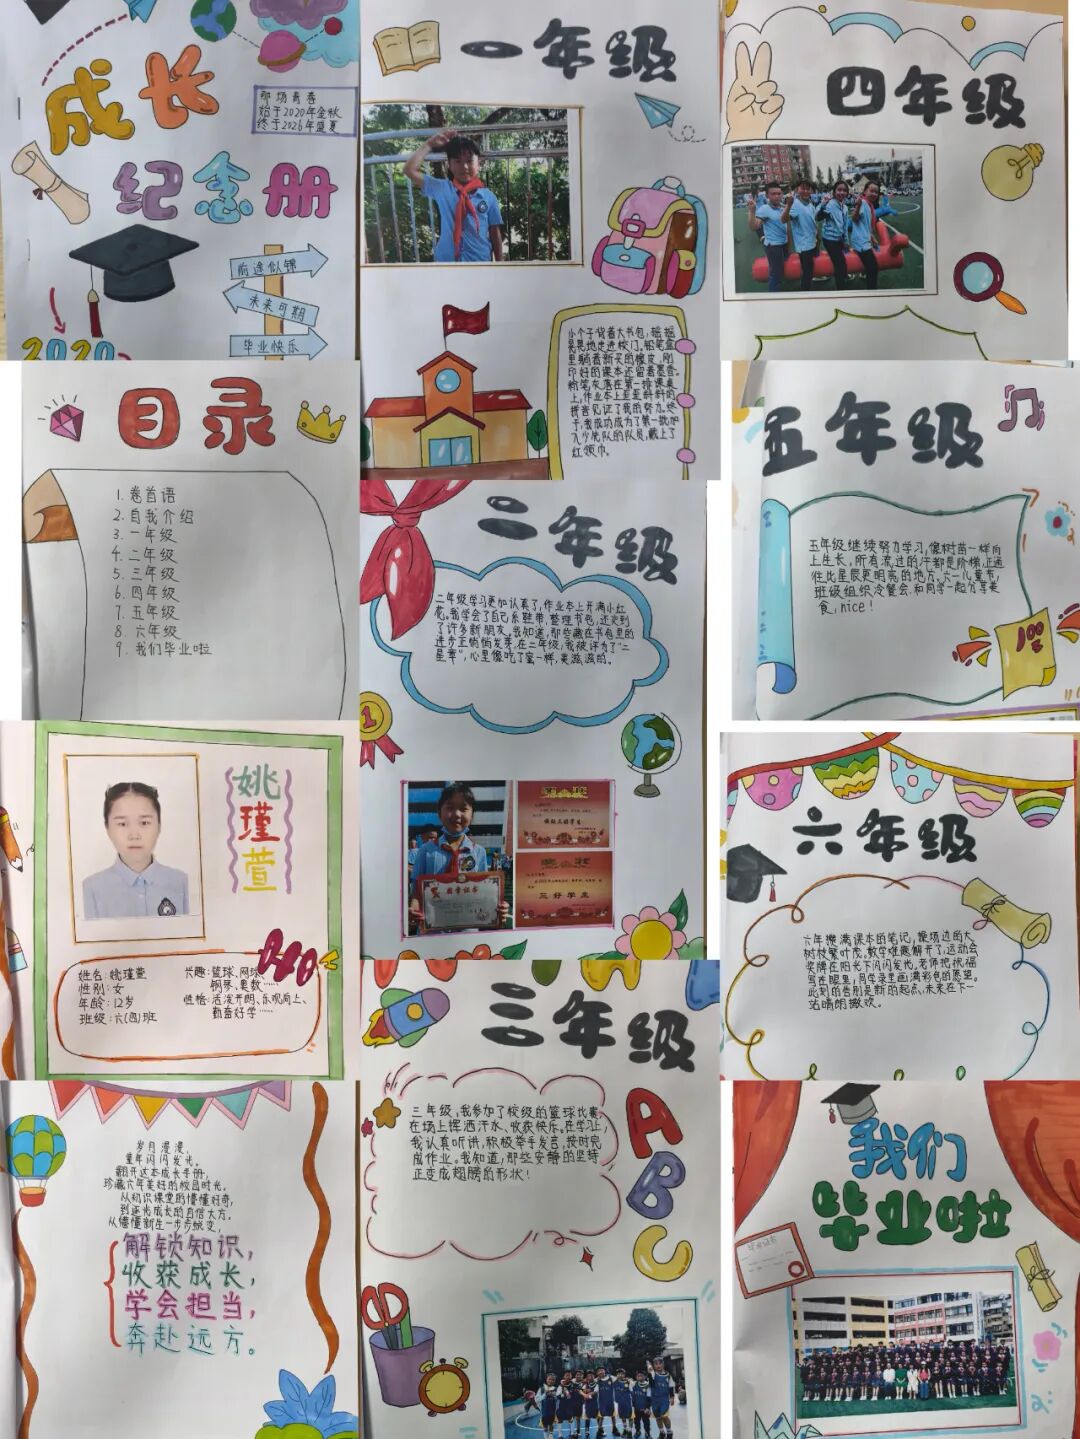 成长
纪念册
那场青春
始于2020年金秋
终于2026年盛夏
前途似锦
未来可期
毕业快乐
2020
目录
1. 卷首语
2. 自我介绍
3. 一年级
4. 二年级
5. 三年级
6. 四年级
7. 五年级
8. 六年级
9. 我们毕业啦
姚瑾萱
姓名:姚瑾萱
性别:女
年龄:12岁
班级:六(四)班
兴趣:篮球、网球、
钢琴、奥数……
性格:活泼开朗、乐观向上、
勤奋好学……
岁月漫漫,
童年闪闪发光。
翻开这本成长手册,
珍藏六年美好的校园时光。
从知识课堂的懵懂好奇,
到逐光成长的自信大方。
从懵懂新生一步步蜕变,
解锁知识,
收获成长,
学会担当,
奔赴远方。
一年级
小个子背着大书包,摇摇
晃晃地走进校门。铅笔盒
里躺着新买的橡皮,刚
印好的课本还留着墨香。
粉笔灰落在第一排课桌
上,作业本上歪歪斜斜的
拼音见证了我的努力。终
于,我成功成为了第一批加
入少先队的队员,戴上了
红领巾。
二年级
二年级学习更加认真了,作业本上开满小红
花。我学会了自己系鞋带,整理书包,还交到
了许多新朋友。我知道,那些藏在书包里的
进步正悄悄发芽。在二年级,我被评为了“二
星章”,心里像吃了蜜一样,美滋滋的。
1
三好学生
三年级
三年级,我参加了校级的篮球比赛,
在场上挥洒汗水、收获快乐。在学习上,
我认真听讲,积极举手发言,按时完
成作业。我知道,那些安静的坚持
正变成翅膀的形状!
A
B
C
四年级
五年级
五年级继续努力学习,像树苗一样向
上生长,所有流过的汗都是阶梯,正通
往比星辰更明亮的地方。六一儿童节,
班级组织冷餐会,和同学一起分享美
食,nice!
100
六年级
六年攒满课本的笔记,操场边的大
树枝繁叶茂。数学难题解开了,运动会
奖牌在阳光下闪闪发光。老师把祝福
写在眼里,同学录里画满彩色的愿望。
此刻的告别是新的起点,未来在下一
站晴朗撒欢。
我们
毕业啦
毕业证书